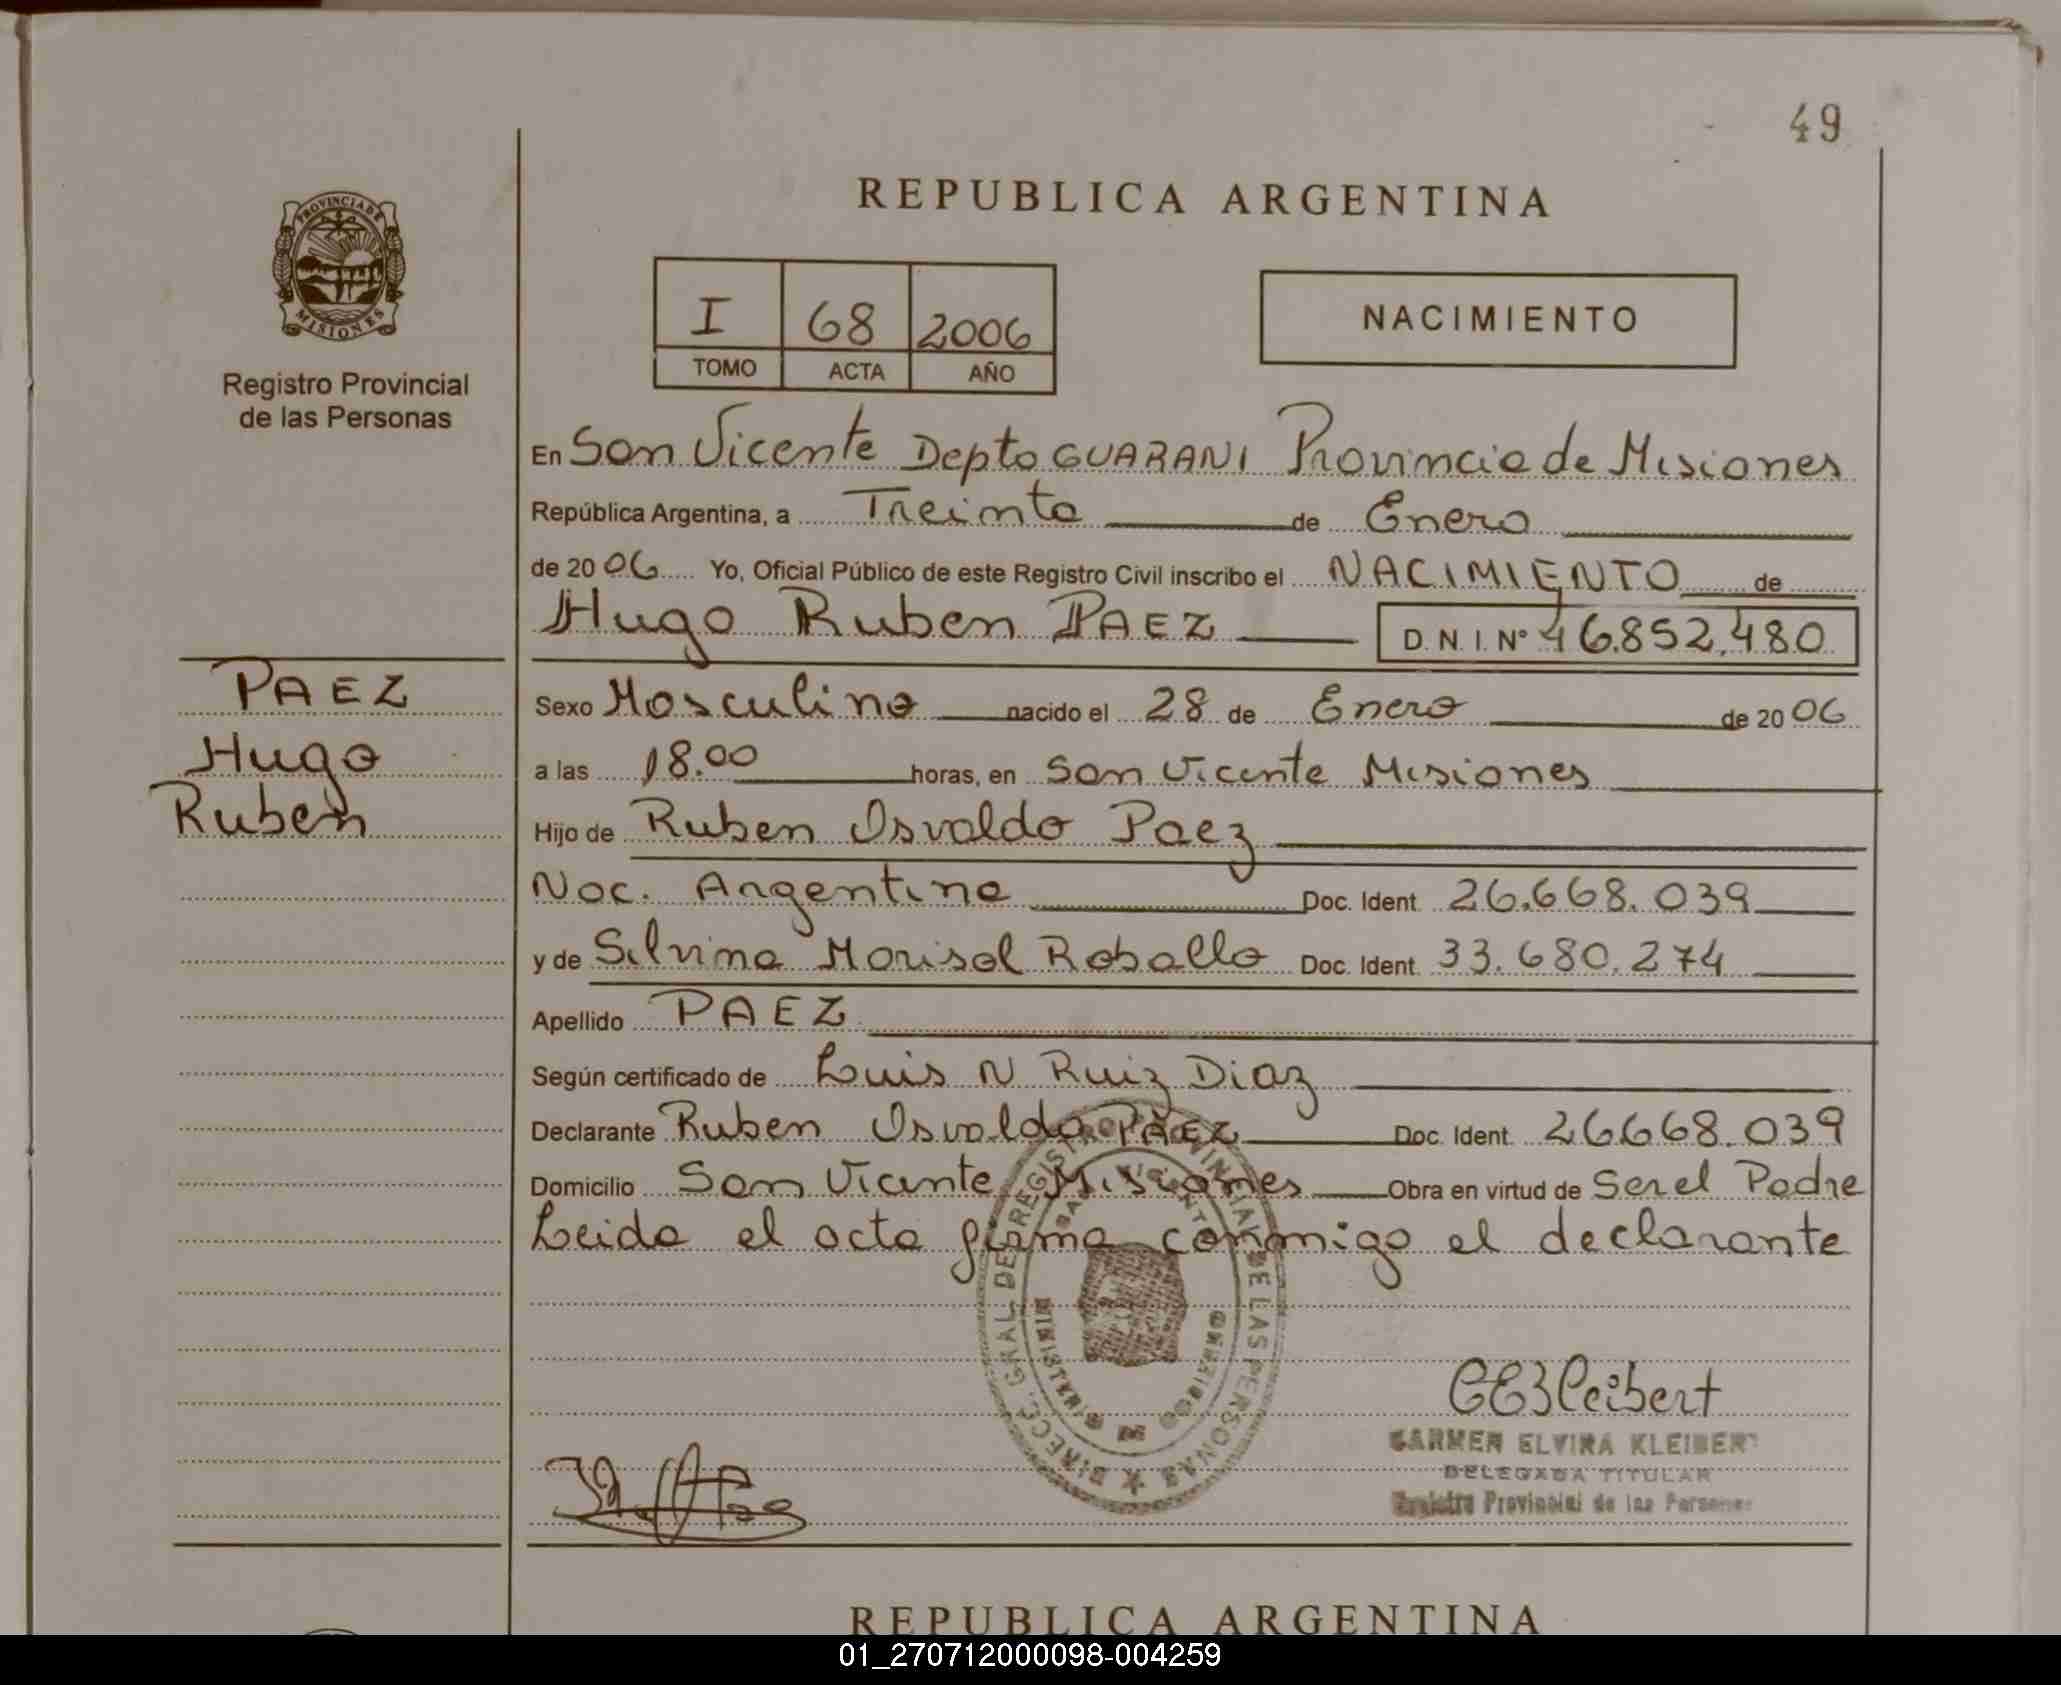 49
REPUBLICA ARGENTINA
PROVINCIA DE
MISIONES
Registro Provincial
de las Personas
I 68 2006
TOMO ACTA AÑO
NACIMIENTO
En San Vicente Depto GUARANI Provincia de Misiones
República Argentina, a Treinta de Enero
de 2006 Yo, Oficial Público de este Registro Civil inscribo el NACIMIENTO de
Hugo Ruben PAEZ D. N. I. Nº 46.852.480
PAEZ
Hugo
Ruben
Sexo Masculino nacido el 28 de Enero de 2006
a las 18.00 horas, en San Vicente Misiones
Hijo de Ruben Osvaldo Paez
Nac. Argentina Doc. Ident. 26.668.039
y de Silvina Marisol Roballo Doc. Ident. 33.680.274
Apellido PAEZ
Según certificado de Luis N Ruiz Diaz
Declarante Ruben Osvaldo PAEZ Doc. Ident. 26668.039
Domicilio San Vicente Misiones Obra en virtud de Ser el Padre
Leida el acta firma conmigo el declarante
DIRECC. GRAL. DEL REGISTRO PROVINCIAL DE LAS PERSONAS
MINISTERIO DE GOBIERNO
CEKleibert
CARMEN ELVIRA KLEIBERT
DELEGADA TITULAR
Registro Provincial de las Personas
REPUBLICA ARGENTINA
01_270712000098-004259